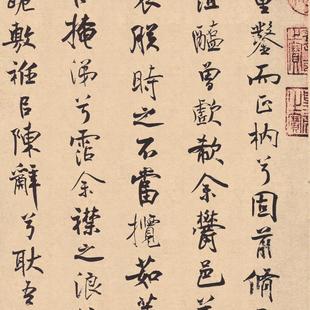 量鑿而正枘兮固前脩
菹醢曾歔欷余鬱邑
哀朕時之不當攬茹
掩涕兮霑余襟之浪
跪敷衽㠯陳辭兮耿吾